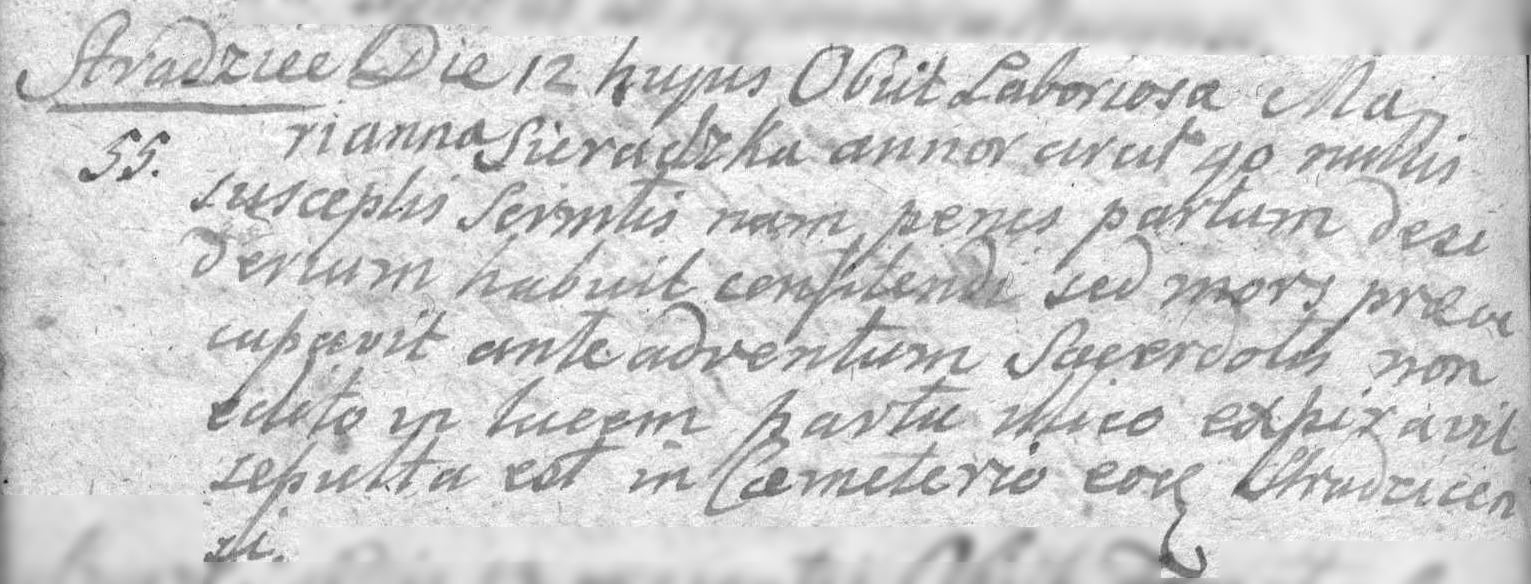 Stradziee Die 12 hujus Obiit Laboriosa Ma
55. rianna Sieradzka annor circit 40 nullis
susceptis Scrmtis nam penes partum desi
derium habuit confitendi sed mors præoc
cupavit ante adventum Sacerdotis non
edito in lucem partu illico expiravit
sepulta est in Cæmeterio eccl Stradzicen
si.